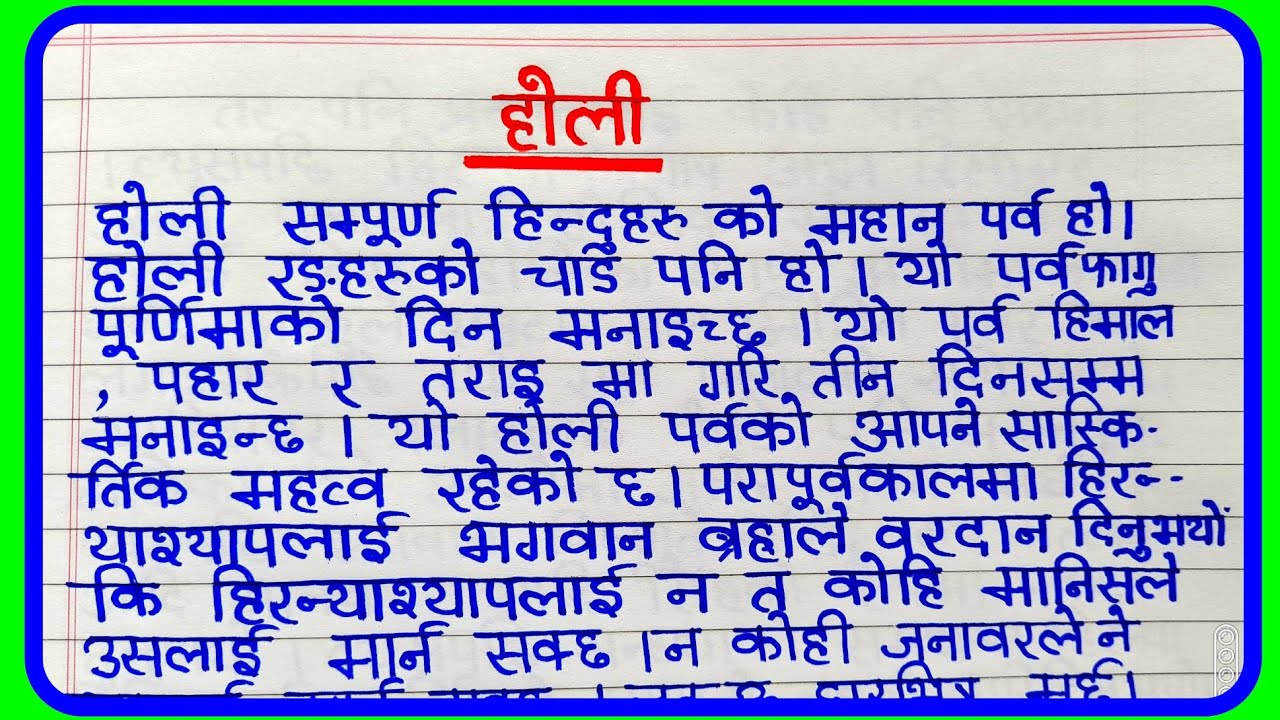 होली
होली सम्पूर्ण हिन्दुहरु को महान पर्व हो।
होली रङहरुको चाड पनि हो। यो पर्व फागु
पूर्णिमाको दिन मनाइच्छ । यो पर्व हिमाल
, पहार र तराइ मा गरि तीन दिनसम्म
मनाइन्छ । यो होली पर्वको आपने सास्कि-
र्तिक महत्व रहेको छ। परापूर्वकालमा हिरन-
याश्यापलाई भगवान ब्रहाले वरदान दिनुभयों
कि हिरन्याश्यापलाई न त कोहि मानिसले
उसलाई मार्न सक्छ ।न कोही जनावरले ने